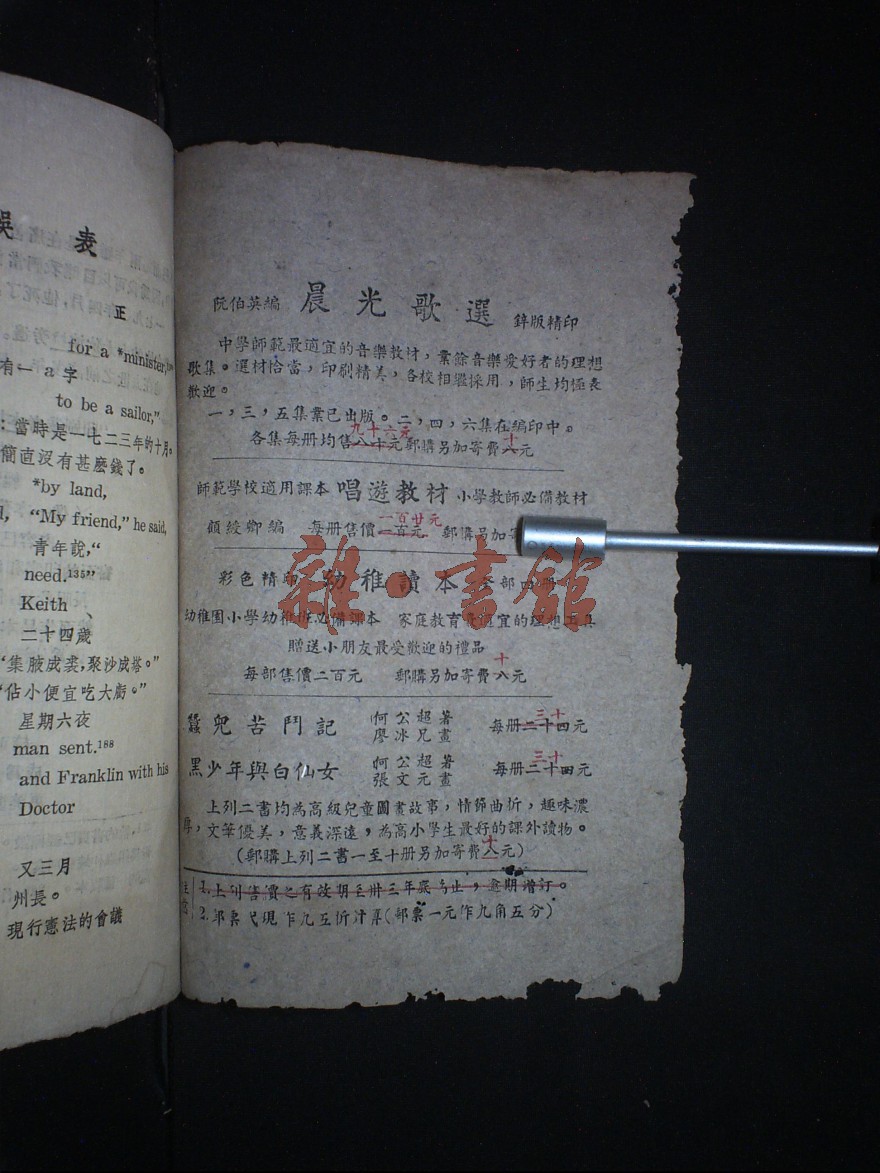 表
正
for a *minister,
有一 a 字
to be a sailor,"
：當時是一七二三年的十月。
簡直沒有甚麽錢了。
*by land,
"My friend," he said,
青年說，"
need.¹³⁵"
Keith
二十四歲
"集腋成裘，聚沙成塔。"
"佔小便宜吃大虧。"
星期六夜
man sent.¹⁸⁸
and Franklin with his
Doctor
又三月
州長。
現行憲法的會議
阮伯英編 晨光歌選 鋅版精印
中學師範最適宜的音樂教材，業餘音樂愛好者的理想
歌集。選材恰當，印刷精美，各校相繼採用，師生均極表
歡迎。
一，三，五集業已出版。二，四，六集在編印中。
九十六元 十
各集每册均售八十元郵購另加寄費八元
師範學校適用課本 唱遊教材 小學教師必備教材
一百廿元
顧綬卿編 每册售價一百元 郵購另加寄
彩色精印 幼稚讀本 全部四册
幼稚園小學幼稚班必備課本 家庭教育最適宜的理想工具
贈送小朋友最受歡迎的禮品
十
每部售價二百元 郵購另加寄費八元
三十
蠶兒苦鬥記 何公超著 廖冰兄畫 每册二十四元
三十
黑少年與白仙女 何公超著 張文元畫 每册二十四元
上列二書均為高級兒童圖畫故事，情節曲折，趣味濃
厚，文筆優美，意義深遠，為高小學生最好的課外讀物。
十
（郵購上列二書一至十册另加寄費八元）
1.上列售價之有效期至卅三年底為止，逾期增訂。
2.郵票代現作九五折計算（郵票一元作九角五分）
雜·書館